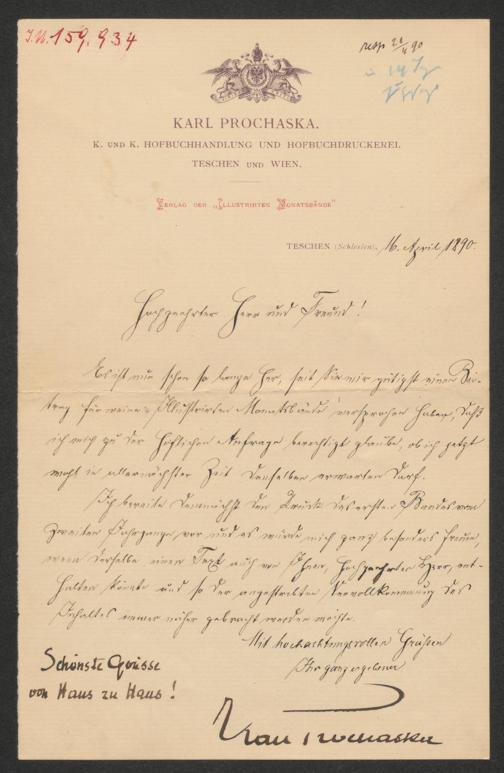 J.N. 159,934
resp 21/4 90
KARL PROCHASKA.
K. UND K. HOFBUCHHANDLUNG UND HOFBUCHDRUCKEREI.
TESCHEN UND WIEN.
VERLAG DER „ILLUSTRIRTEN MONATSBÄNDE“
TESCHEN (Schlesien), 16. April 1890.
Hochgeehrter Herr und Freund!
Es ist nun schon so lange her, seit Sie mir gütigst einen Bei-
trag für meine „Illustrirten Monatsbände“ versprochen haben, daß
ich mich zu der höflichen Anfrage berechtigt glaube, ob ich jetzt
wohl in allernächster Zeit denselben erwarten darf.
Ich bereite demnächst den Druck des ersten Bandes vom
zweiten Jahrgange vor und es würde mich ganz besonders freuen,
wenn derselbe einen Text auch von Ihnen, hochgeehrter Herr, ent-
halten könnte und so der angestrebten Vervollkommnung des
Inhaltes immer näher gebracht werden möchte.
Mit hochachtungsvollen Grüßen
Ihr ganz ergebener
Schönste Grüsse
von Haus zu Haus!
Karl Prochaska